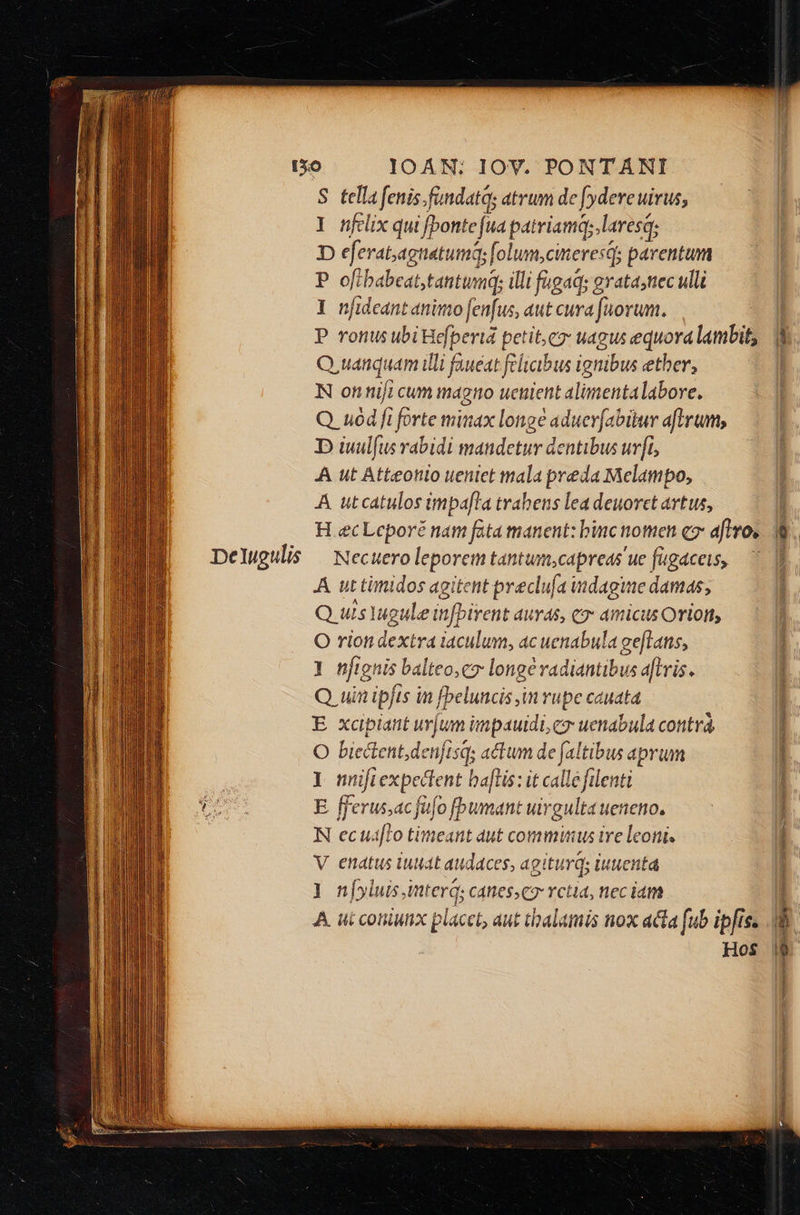 130 IOAN: IOV. PONTANI
S tella ſenis, fundatq; atrum de ſydere uirus,
I nfelix qui ſponte ſua patriamq;, laresq;
D eſerat, agnatumq; ſolum, cineresq; parentum
P oſthabeat, tantumq; illi fugaq; grata, nec ulli
I nſideant animo ſenſus, aut cura ſuorum.
P ronus ubi Heſperiã petit, & uagus æquora lambit,
Q uanquam illi faueat felicibus ignibus æther,
N on niſi cum magno uenient alimenta labore.
Q uòd ſi forte minax longe aduerſabitur aſtrum,
D iuulſus rabidi mandetur dentibus urſi,
A ut Attæonio ueniet mala præda Melampo,
A ut catulos impaſta trahens lea deuoret artus,
H æc Leporẽ nam fata manent: hinc nomen & aſtro.
De Iugulis Nec uero leporem tantum, capreas'ue fugaceis,
A ut timidos agitent precluſa indagine damas,
Q uis Iugulæ inſpirent auras, & amicus Orion,
O rion dextra iaculum, ac uenabula geſtans,
I nſignis balteo, & longe radiantibus aſtris.
Q uin ipſis in ſpeluncis, in rupe cauata
E xcipiant urſum impauidi, & uenabula contrà
O biectent, denſisq; actum de ſaltibus aprum
I nniſi expectent haſtis: it calle ſilenti
E fferus, ac fuſo ſpumant uirgulta ueneno.
N ec uaſto timeant aut comminus ire leoni.
V enatus iuuat audaces, agiturq; iuuenta
I n ſyluis, interq; canes, & retia, nec iam
A ut coniunx placet, aut thalamis nox acta ſub ipſis.
Hos